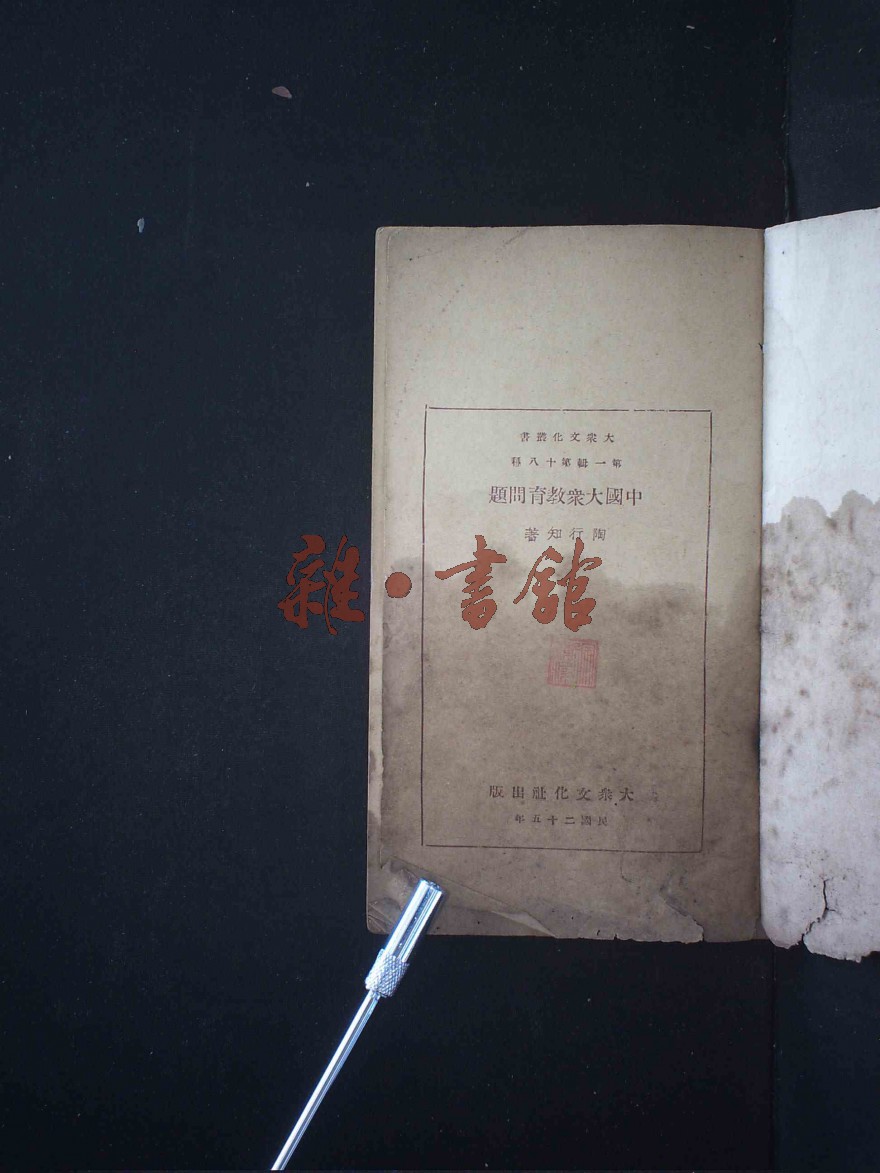 大衆文化叢書
第一輯第十八種
中國大衆教育問題
陶行知著
雜·書館
大衆文化社出版
民國二十五年